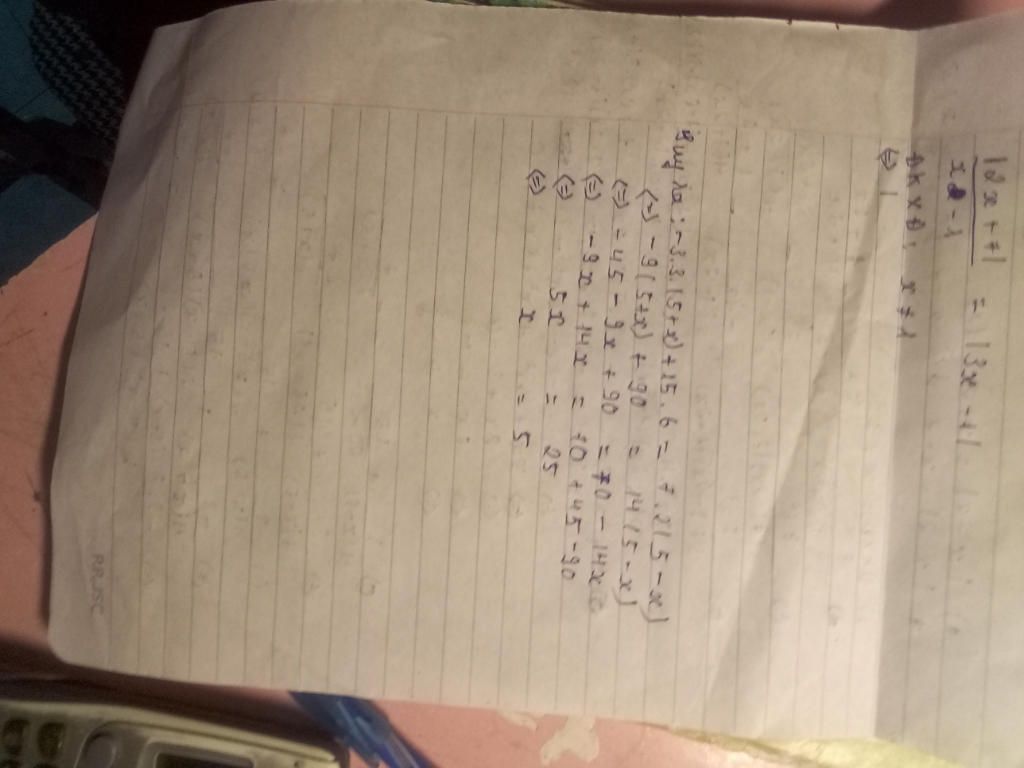 |2x + 7|
x - 1 = |3x - 1|
ĐKXĐ: x ≠ 1
⇔ |
Suy ra: -3.3(5+x)+15.6 = 7.2(5-x)
⇔ -9(5+x) + 90 = 14(5-x)
⇔ -45 - 9x + 90 = 70 - 14x
⇔ -9x + 14x = 70 + 45 - 90
⇔ 5x = 25
⇔ x = 5